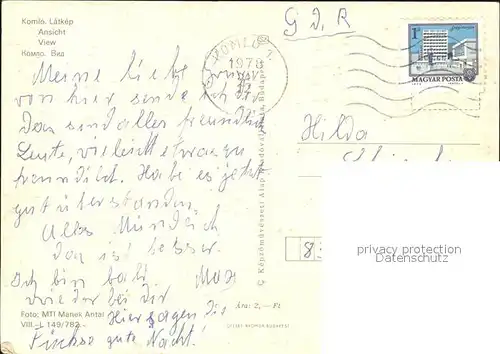 Komló. Látkép
Ansicht
View
Комло. Вид
G D R
KOMLÓ 1.
1978
1 Ft
MAGYAR POSTA
Meine liebe
von hier sende ich Dir
Das sind aller freundlich
Leute, vielleicht etwas zu
freundlich. Habe es jetzt
gut überstanden
Alles Mündlich
das ist besser.
Ich bin bald. Max
wieder bei Dir
Hier sagen die
Fische gute Nacht!
Hilda
8
© Képzőművészeti Alap Kiadóvállalata, Budapest
privacy protection
Datenschutz
Ára: 2,– Ft
Foto: MTI Manek Antal
VIII.–L 149/782
OFFSET NYOMDA BUDAPEST